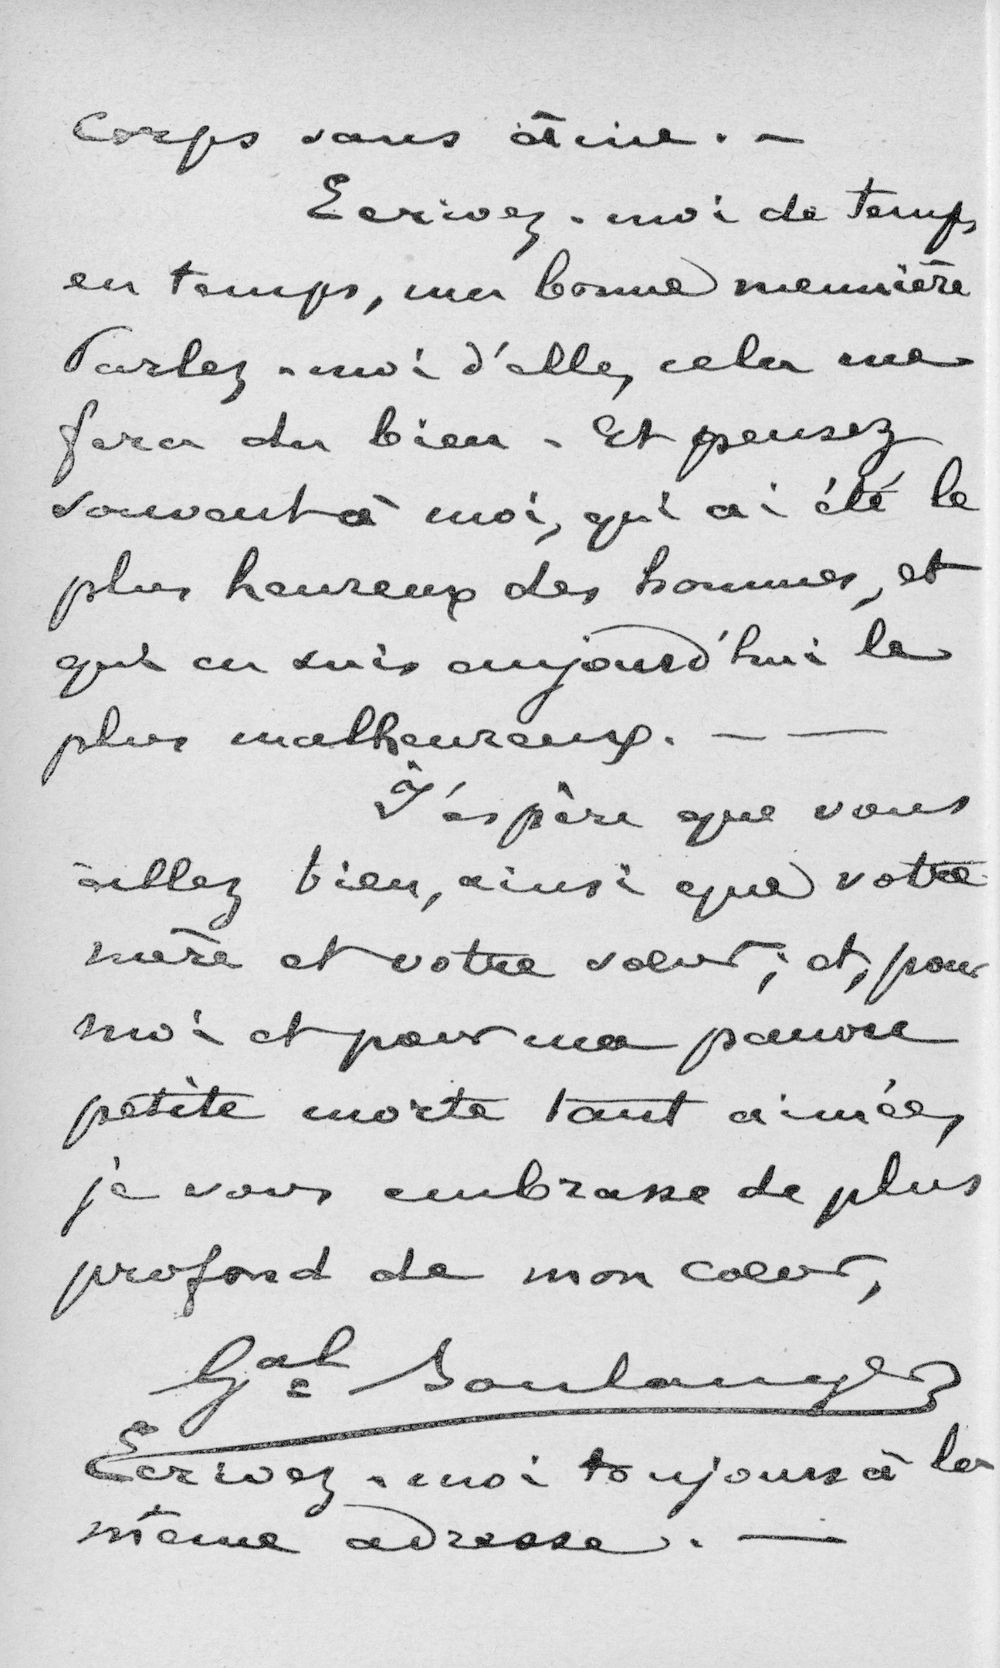 Corps sans âme. —
Ecrivez-moi de temps
en temps, ma bonne meunière
Parlez-moi d'elle, cela me
fera du bien - Et pensez
souvent à moi, qui ai été le
plus heureux des hommes, et
qui en suis aujourd'hui le
plus malheureux. — —
J'espère que vous
allez bien, ainsi que votre
mère et votre soeur ; et, pour
moi et pour ma pauvre
petite morte tant aimée,
je vous embrasse de plus
profond de mon coeur,
Gal Boulanger
Ecrivez-moi toujours à la
même adresse. —